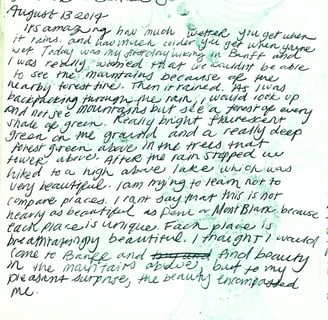 August 13 2017
It's amazing how much wetter you get when
it rains. and how much colder you get when you're
wet. Today was my first day hiking in Banff and
I was really worried that we wouldn't be able
to see the mountains because of the
nearby forest fire. Then it rained. As I was
backpacking through the rain, I would look up
And not see mountains but see a forest of every
shade of green. Really bright flourescent
green on the ground and a really deep
forest green above in the trees that
tower above. After the rain stopped we
hiked to a high above lake which was
very beautiful. I am trying to learn not to
compare places. I cant say that this is not
nearly as beautiful as Peru or Mont Blanc, because
each place is unique. Each place is
breathtakingly beautiful. I thought I would
come to Banff and find beauty
in the mountains above, but to my
pleasant surprise, the beauty encompassed
me.